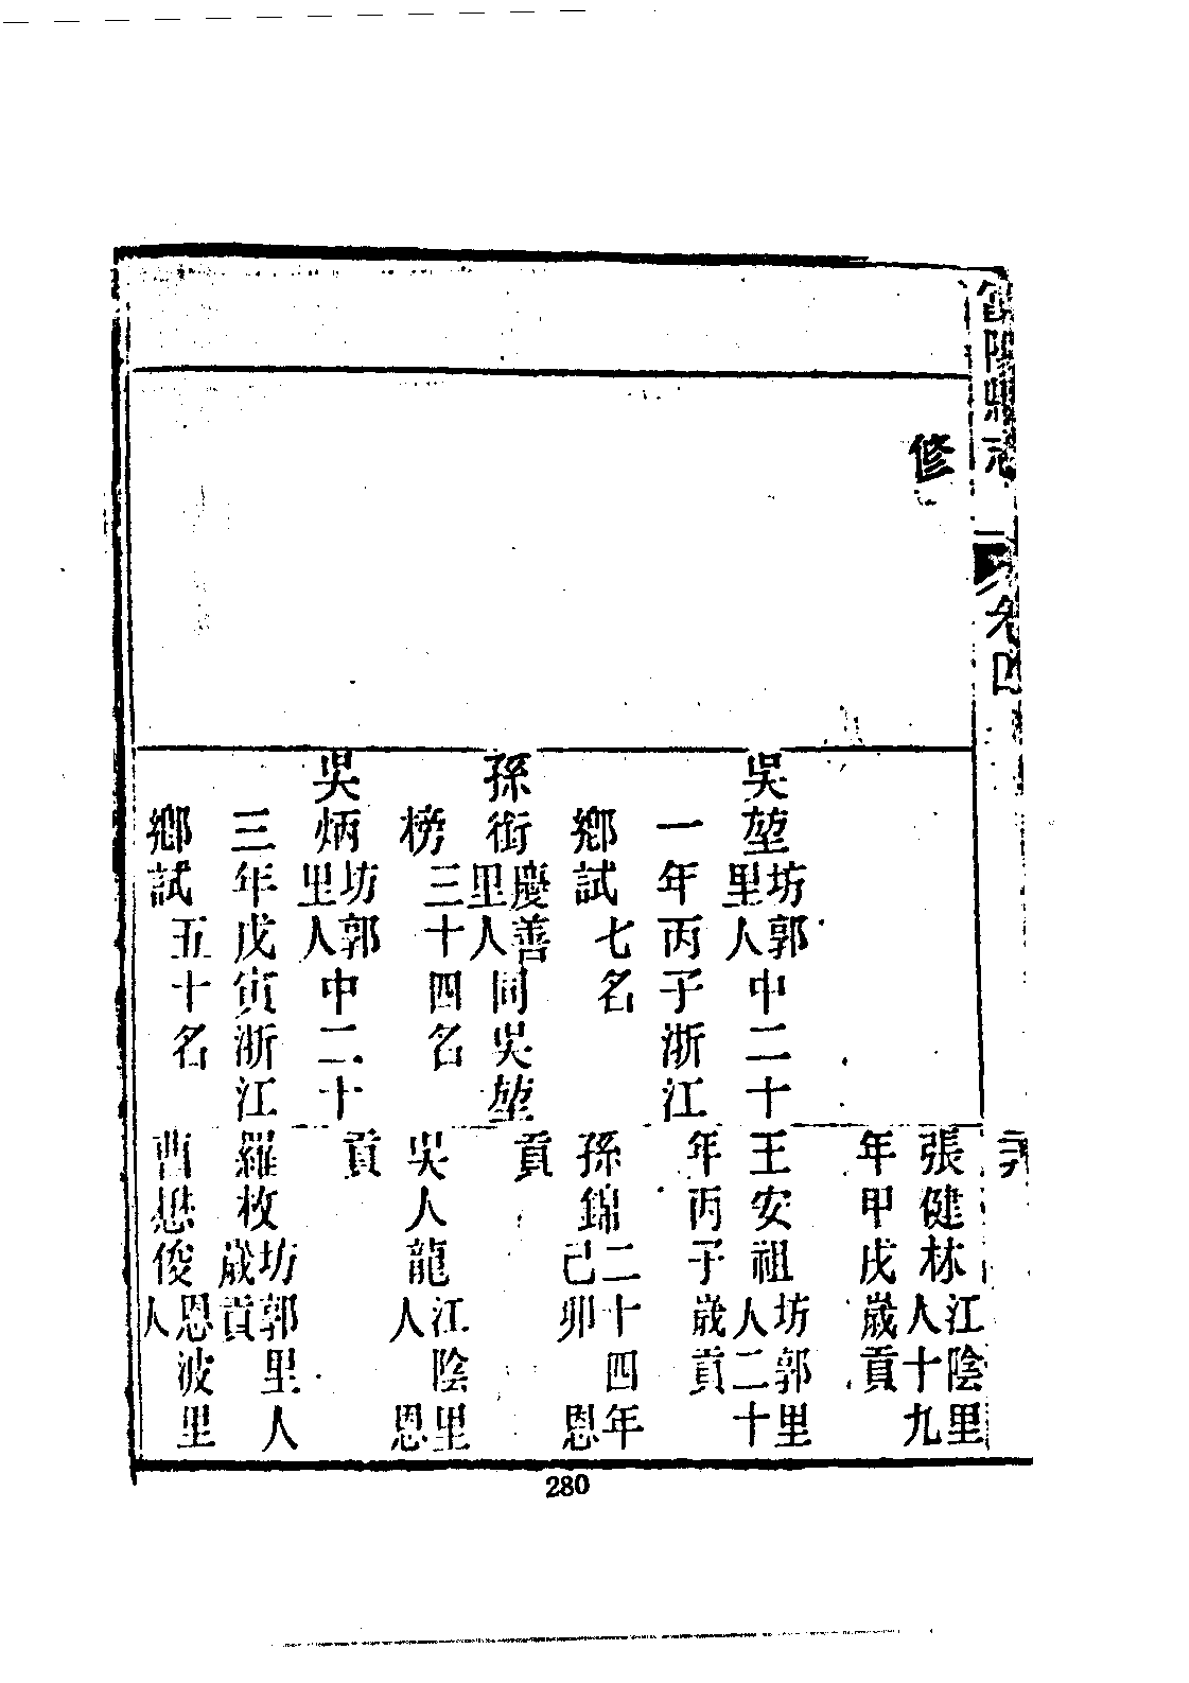 陽縣志
卷四
修
吳堃坊郭里人中二十
一年丙子浙江
鄉試七名
孫銜慶善里人同吳堃
榜三十四名
吳炳坊郭里人中二十
三年戊寅浙江
鄉試五十名
張健林江陰里人十九
年甲戌歲貢
王安祖坊郭里人二十
年丙子歲貢
孫錦二十四年己卯恩
貢
吳人龍江陰里人恩
貢
羅枚坊郭里人歲貢
曹懋俊恩波里人
280